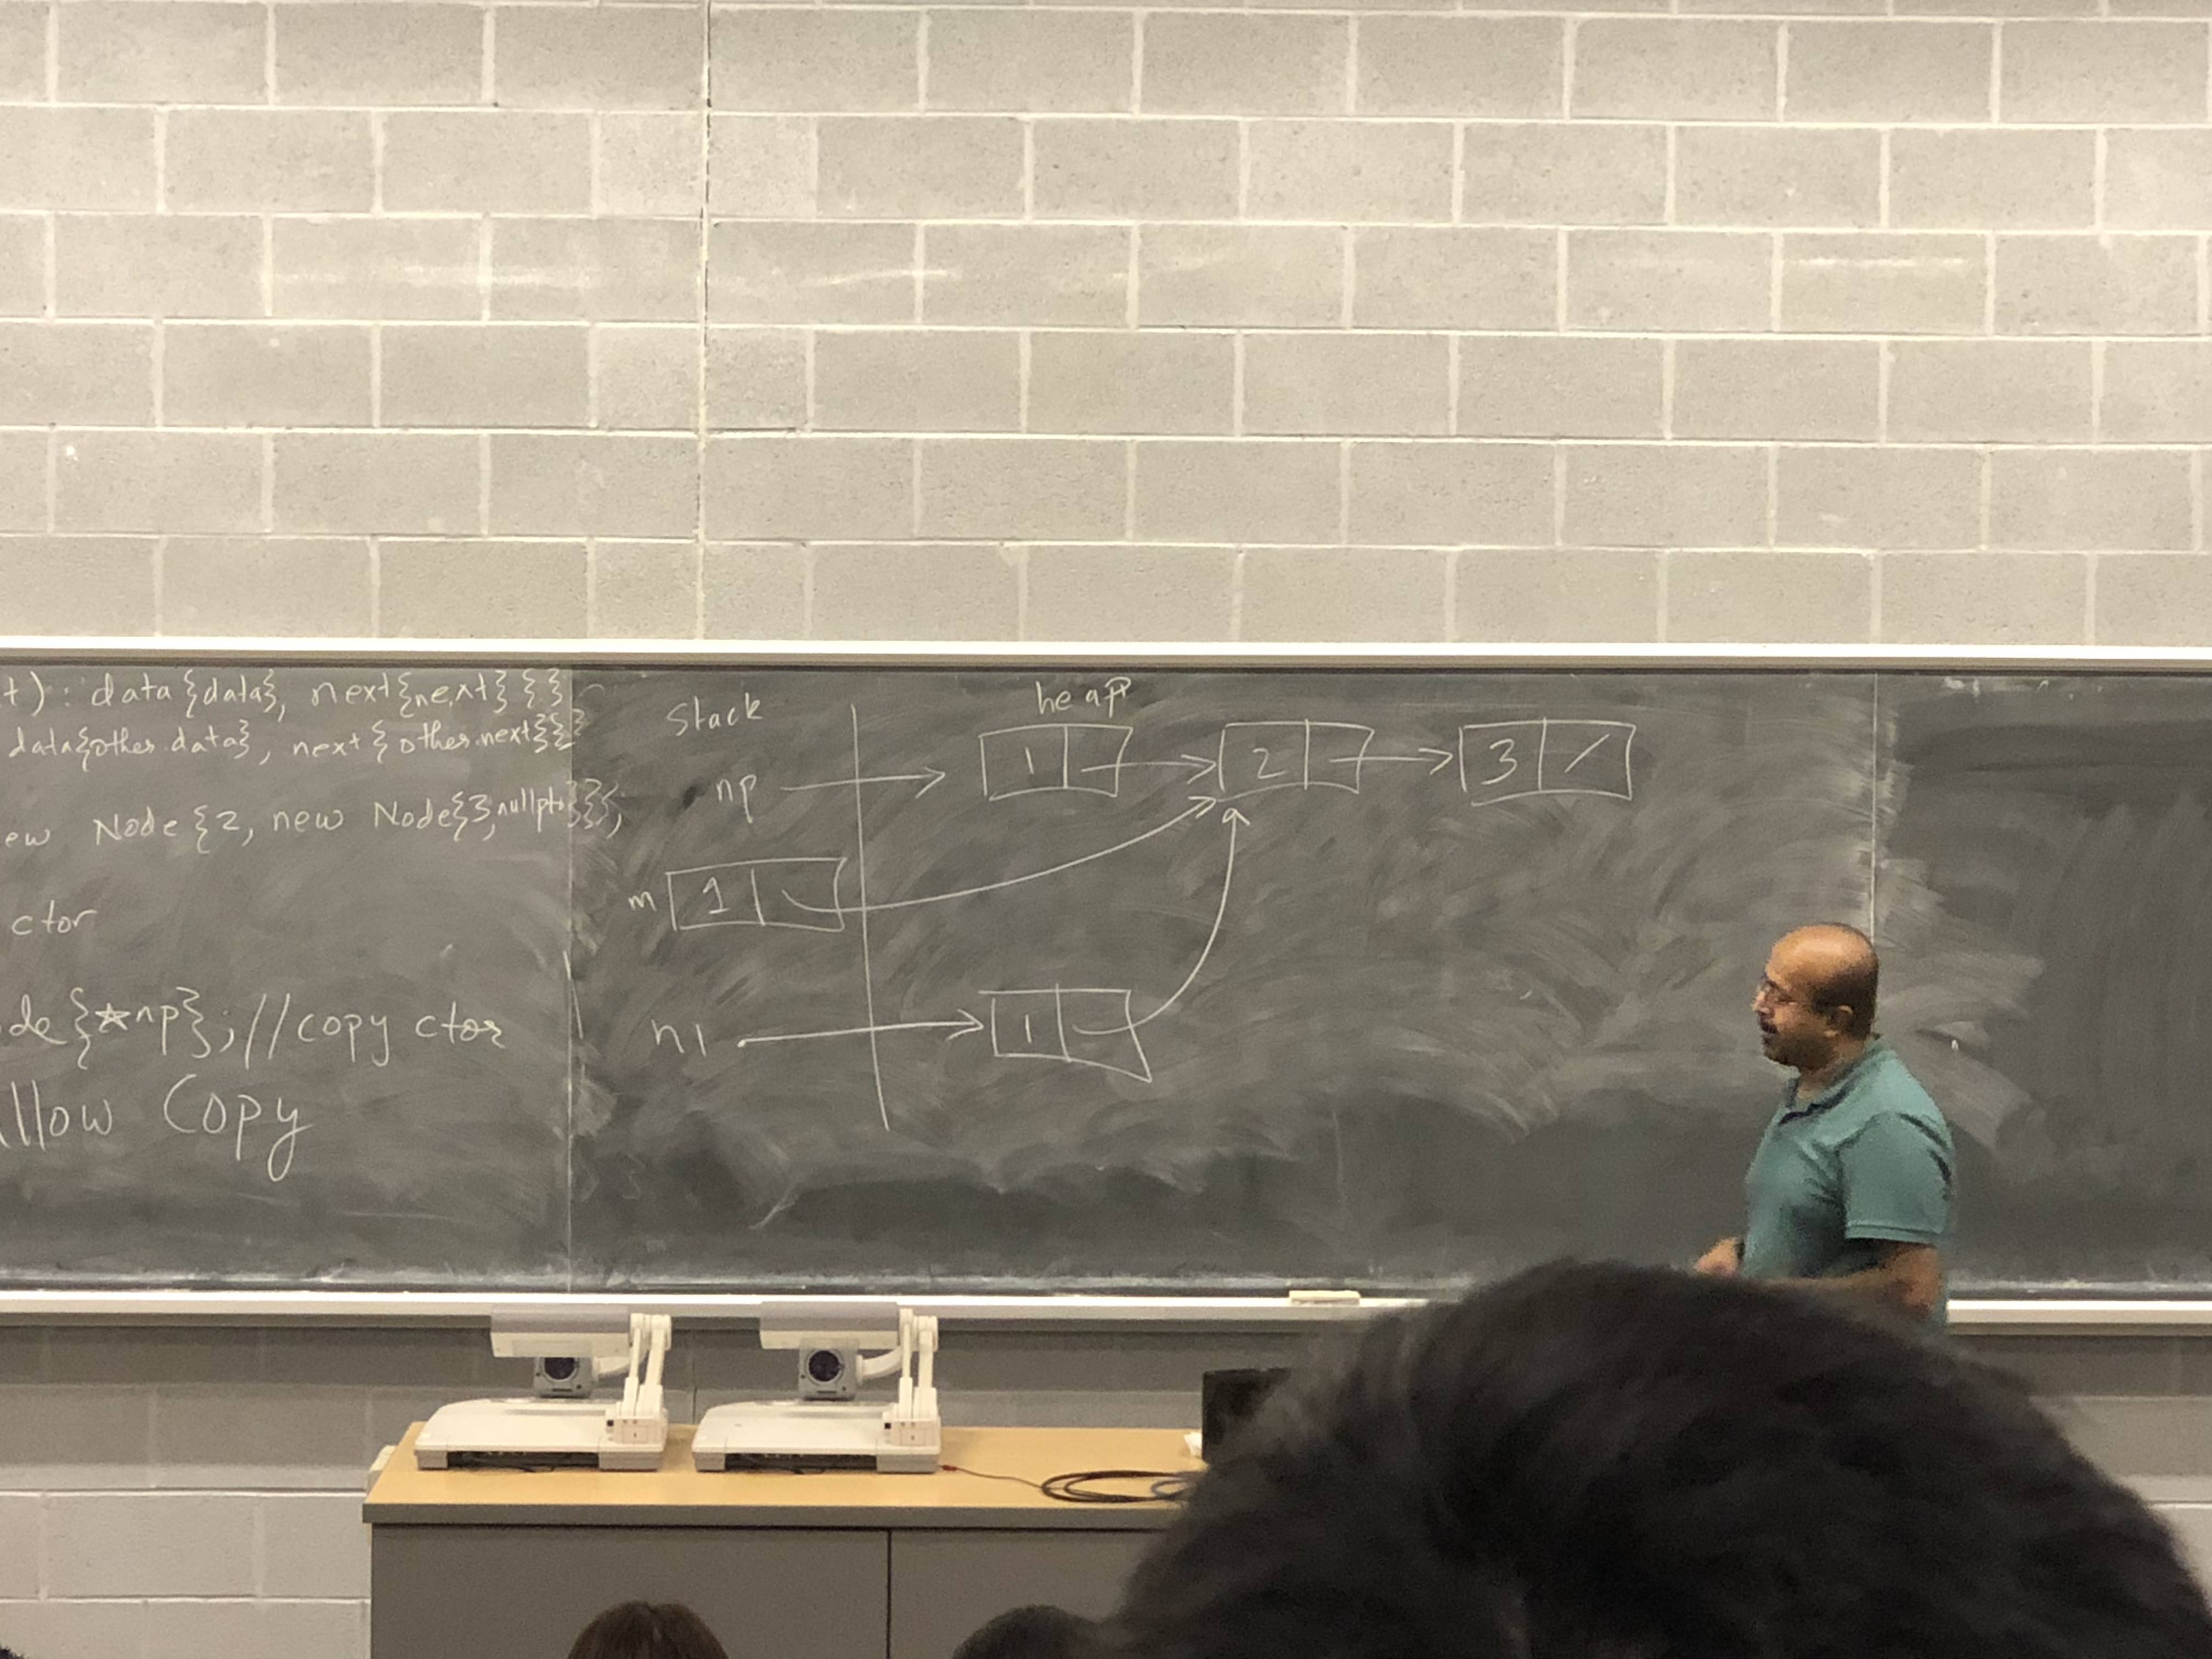 t): data{data}, next{next}{}
data{other.data}, next{other.next}{}
ew Node{2, new Node{3,nullptr}}};
ctor
de{*np}; //copy ctor
llow Copy
Stack
heap
np
1
2
3 /
m
1
n1
1